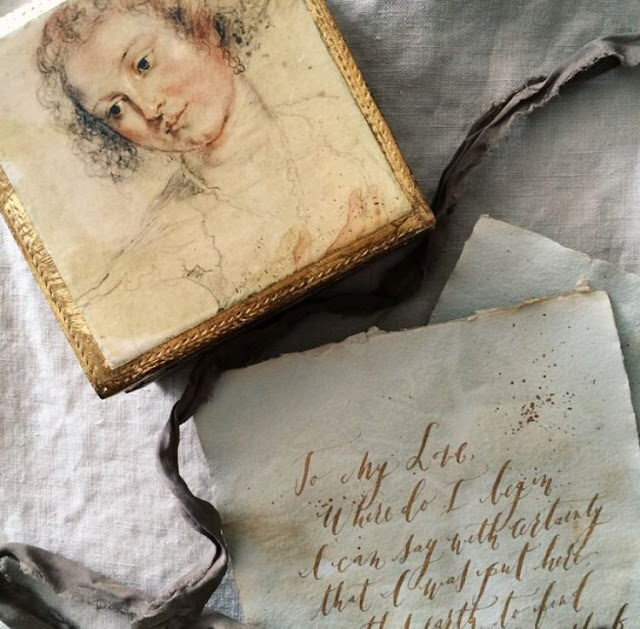 To My Love,
Where do I begin
I can say with certainty
that I was put here
earth to find